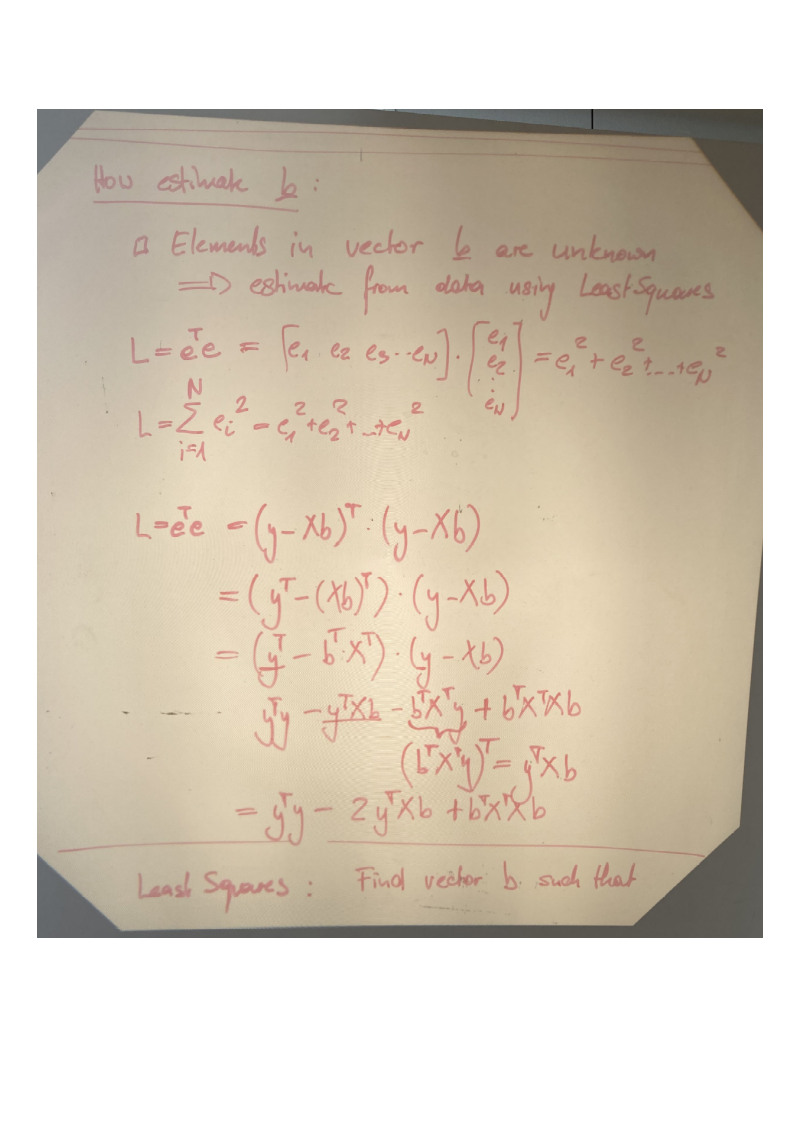 How estimate b :
□ Elements in vector b are unknown
⟹ estimate from data using Least Squares
L = eᵀe = [e₁ e₂ e₃ ... e_N] · [e₁ e₂ ⋮ e_N] = e₁² + e₂² + ... + e_N²
L = ∑_{i=1}^{N} e_i² = e₁² + e₂² + ... + e_N²
L = eᵀe = (y - Xb)ᵀ · (y - Xb)
= (yᵀ - (Xb)ᵀ) · (y - Xb)
= (yᵀ - bᵀ·Xᵀ) · (y - Xb)
yᵀy - yᵀXb - bᵀXᵀy + bᵀXᵀXb
(bᵀXᵀy)ᵀ = yᵀXb
= yᵀy - 2yᵀXb + bᵀXᵀXb
Least Squares : Find vector b such that